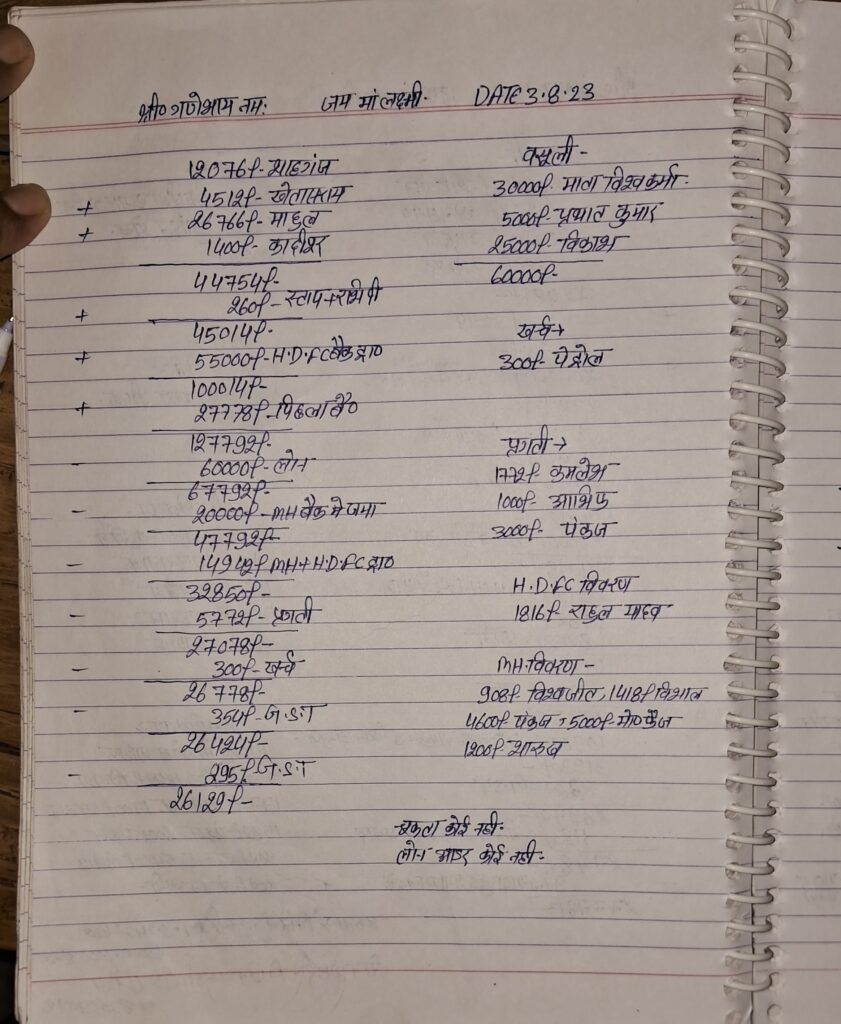 श्री० गणेशाय नमः जय मां लक्ष्मी. DATE 3.8.23
12076/- शाहगंज
+ 4512/- खेतासराय
+ 26766/- माहुल
1400/- कादीपुर
44754/-
+ 260/- स्टाम्प+
45014/-
+ 55000/- H.D.FC बैंक द्वा०
100014/-
+ 27778/- पिछला बै०
127792/-
- 60000/- लोन
67792/-
- 20000/- MH बैंक मे जमा
47792/-
- 14942/- MH+H.D.FC द्वा०
32850/-
- 5772/- प्रगती
27078/-
- 300/- खर्च
26778/-
- 354/- G.S.T
26424/-
- 295/- G.S.T
26129/-
वसूली -
30000/- माता विश्वकर्मा.
5000/- प्रभात कुमार
25000/- विकाश
60000/-
खर्च→
300/- पेट्रोल
प्रगती→
1772/- कमलेश
1000/- आशिफ
3000/- पंकज
H.D.FC विवरण
1816/- राहुल यादव
MH विवरण -
908/- विश्वजीत, 1418/- विशाल
4600/- पंकज, 5000/- मो० फैज
1200/- शारुख
कोई नही.
लोन कोई नही.